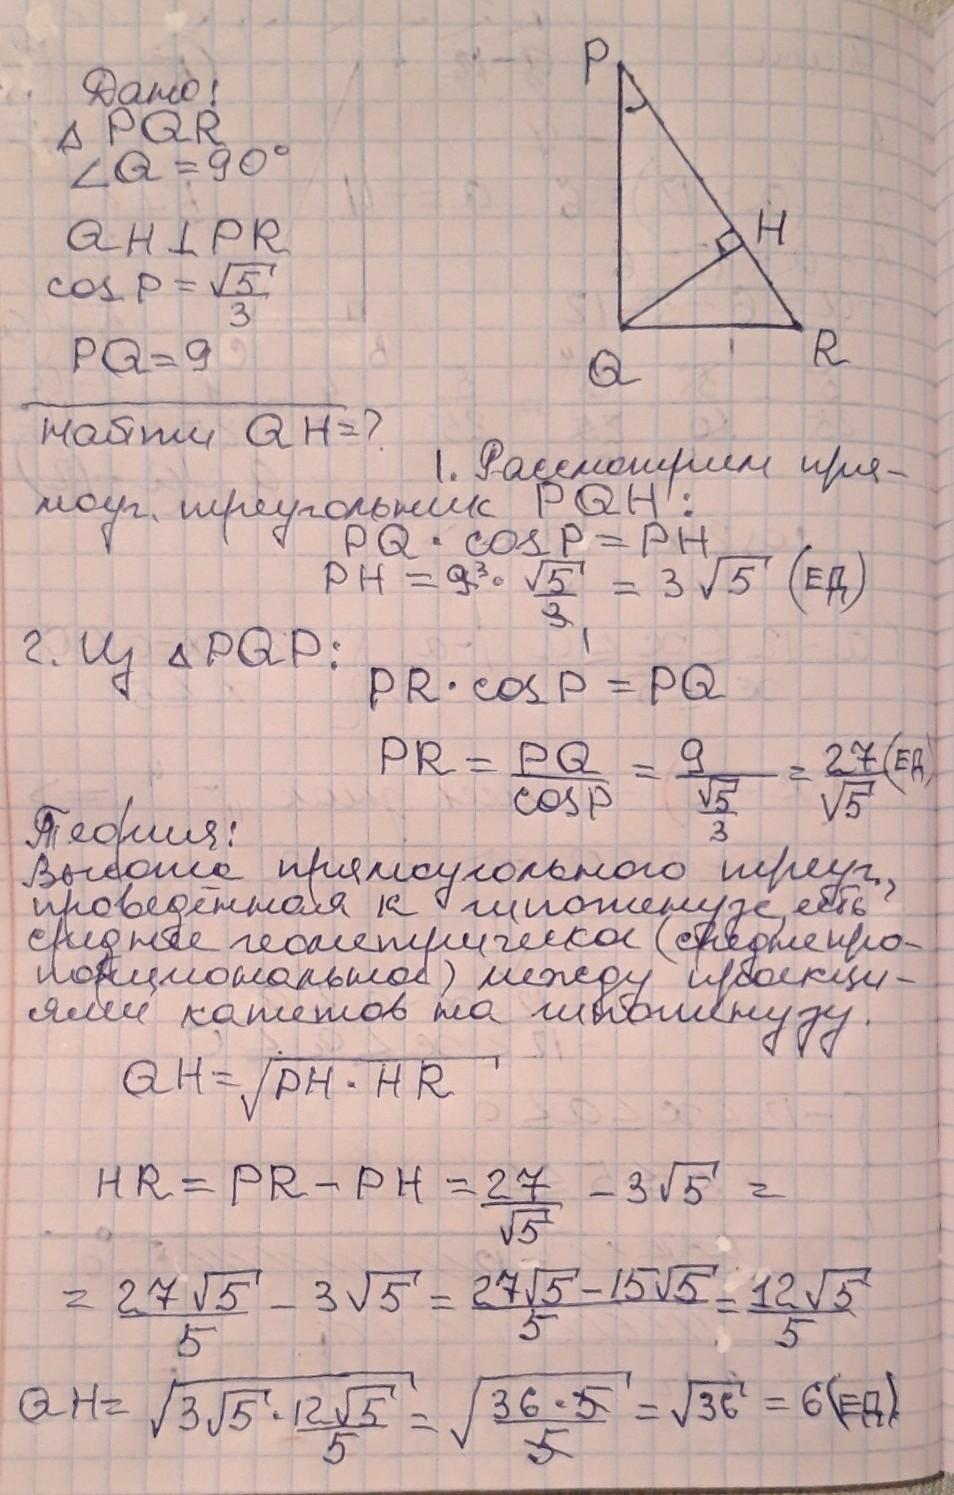 Дано:
△ PQR
∠Q = 90°
QH ⊥ PR
cos P = √5/3
PQ = 9
P
H
Q
R
Найти QH = ?
1. Рассмотрим пря-
моуг. треугольник PQH:
PQ · cos P = PH
PH = 9³ · √5/3₁ = 3√5 (ЕД)
2. Из △ PQP:
PR · cos P = PQ
PR = PQ/cos P = 9/(√5/3) = 27/√5 (ЕД)
Теория:
Высота прямоугольного треуг.,
проведённая к гипотенузе, есть
среднее геометрическое (среднепро-
порциональное) между проекци-
ями катетов на гипотенузу.
QH = √(PH · HR)
HR = PR − PH = 27/√5 − 3√5 =
= 27√5/5 − 3√5 = (27√5 − 15√5)/5 = 12√5/5
QH = √(3√5 · 12√5/5) = √(36 · 5/5) = √36 = 6 (ЕД)